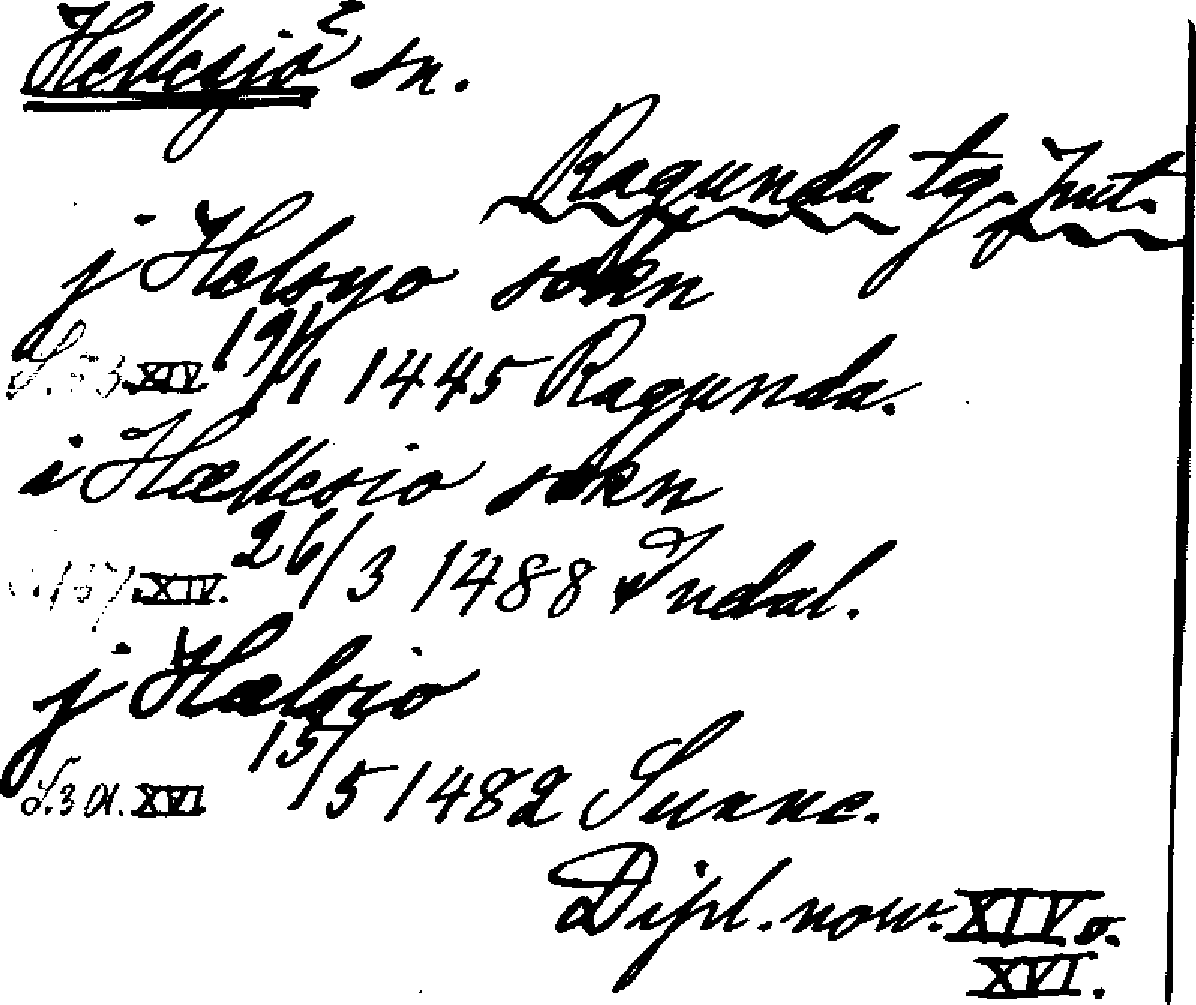 Hellesjö sn.
Ragunda tg. Jmt.
j Helsyo sokn
S. 53 XIV. 19/1 1445 Ragunda.
i Hællesio sokn
137 XIV. 26/3 1488 Indal.
j Hælsio
S. 3 01. XVI 15/5 1482 Sunne.
Dipl. norv. XIV o.
XVI.